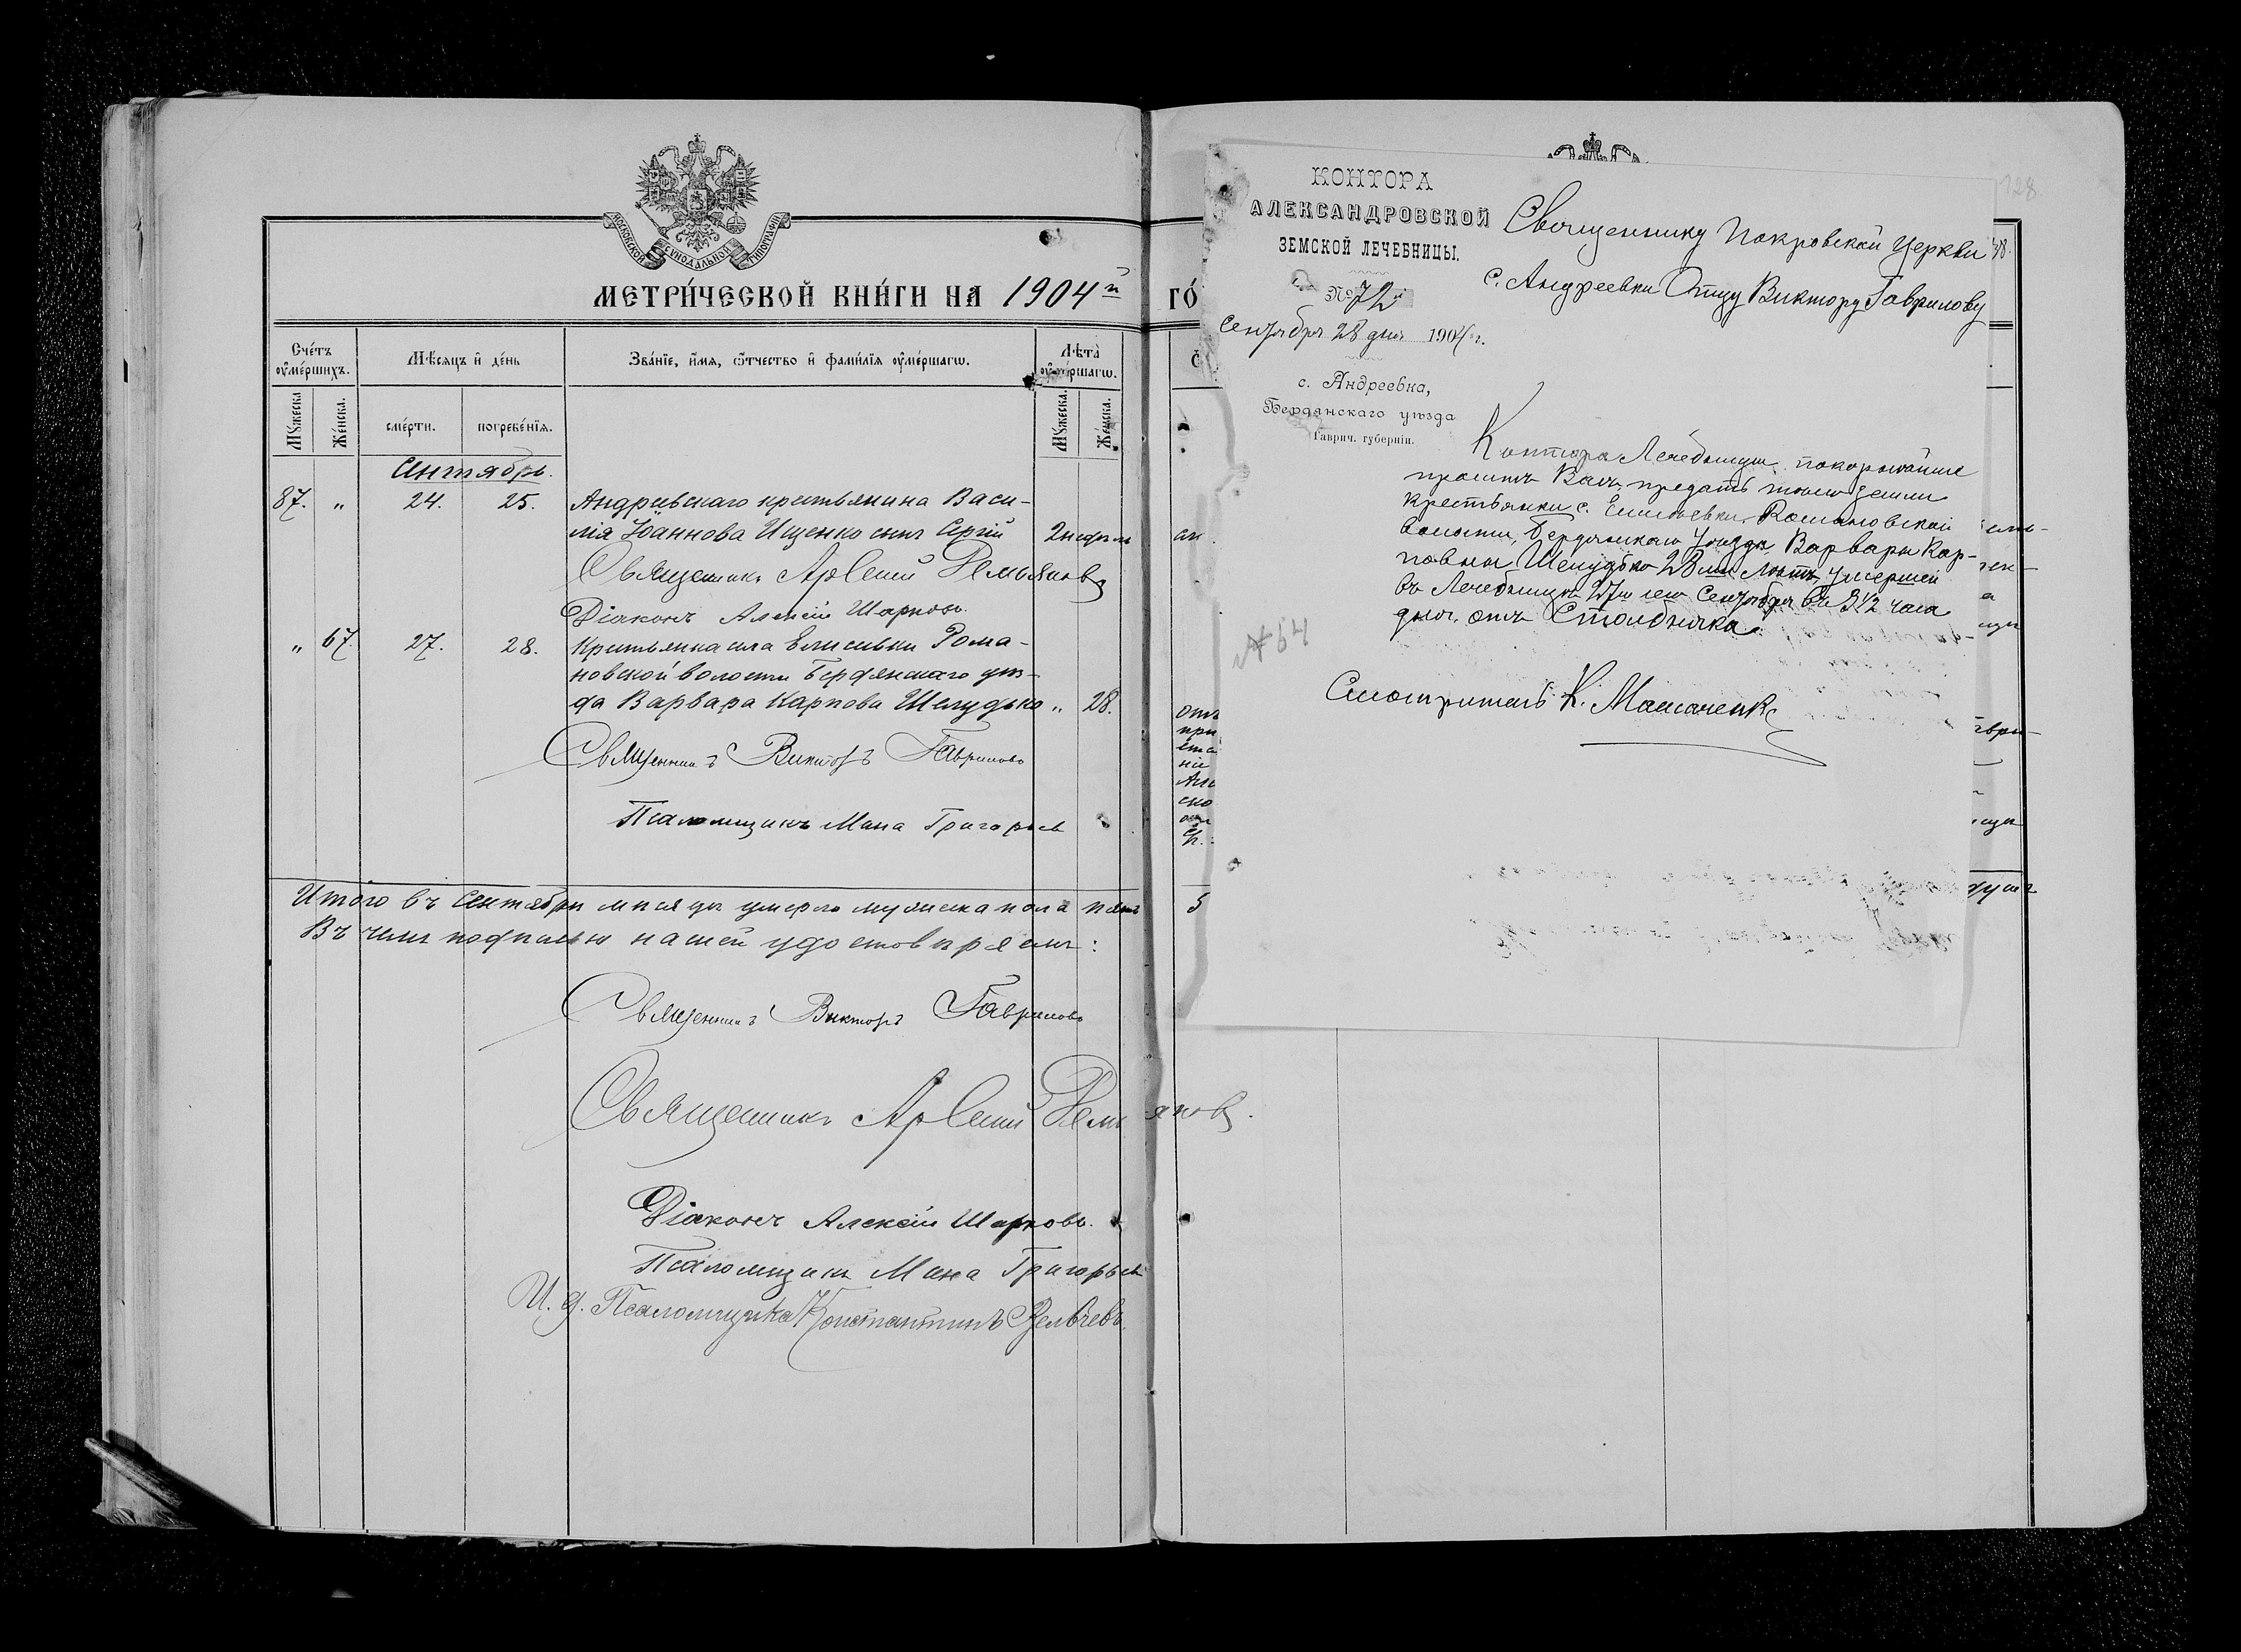 МОСКОВСКОЙ СѴНОДАЛЬНОЙ ТИПОГРАФІИ
МЕТРИ́ЧЕСКОЙ КНИ́ГИ НА 1904й
Сче́тъ ᲂу҆ме́ршихъ.
Мѣ́сяцъ и҆ де́нь
Зва́нїе, и҆́мя, ѻ҆́тчество и҆ фами́лїя ᲂу҆ме́ршагѡ.
Лѣ́та ᲂу҆ме́ршагѡ.
Мꙋ́жеска.
Же́нска.
сме́рти.
погребе́нїя.
Мꙋ́жеска.
Же́нска.
Сентябрь.
87. " 24. 25. Андреевскаго крестьянина Васи-
лія Іоаннова Ищенко сынъ Сергій 2 недѣль
Священникъ Арсеній
Діаконъ Алексій Шарковъ.
" 67. 27. 28. Крестьянка села Елисѣевки Рома-
новской волости Бердянскаго уѣз-
да Варвара Карпова Шелудько " 28.
Священникъ Викторъ Гавриловъ
Псаломщикъ Мина Григорьев
Итого въ Сентябрѣ мѣсяцѣ умерло мужеска пола пять
Въ чемъ подписью нашей удостовѣряемъ:
Священникъ Викторъ Гавриловъ
Священникъ Арсеній
Діаконъ Алексій Шарковъ.
Псаломщикъ Мина Григорьев
И. д. Псаломщика Константинъ
ГО́
128
КОНТОРА
АЛЕКСАНДРОВСКОЙ
ЗЕМСКОЙ ЛЕЧЕБНИЦЫ.
№ 72
Сентября 28 дня 1904 г.
с. Андреевка,
Бердянскаго уѣзда
Таврич. губерніи.
Священнику Покровской церкви
с. Андреевки Отцу Виктору Гаврилову
Контора Лечебницы покорнѣйше
проситъ Васъ предать тѣло земли
крестьянки с. Елисѣевки, Романовской
волости, Бердянскаго Уѣзда Варвары Кар-
повны Шелудько 28 ми лѣтъ, умершей
въ Лечебницѣ 27го сего Сентября въ 3 1/2 часа
дня, отъ Столбняка.
№ 54
Смотритель К.